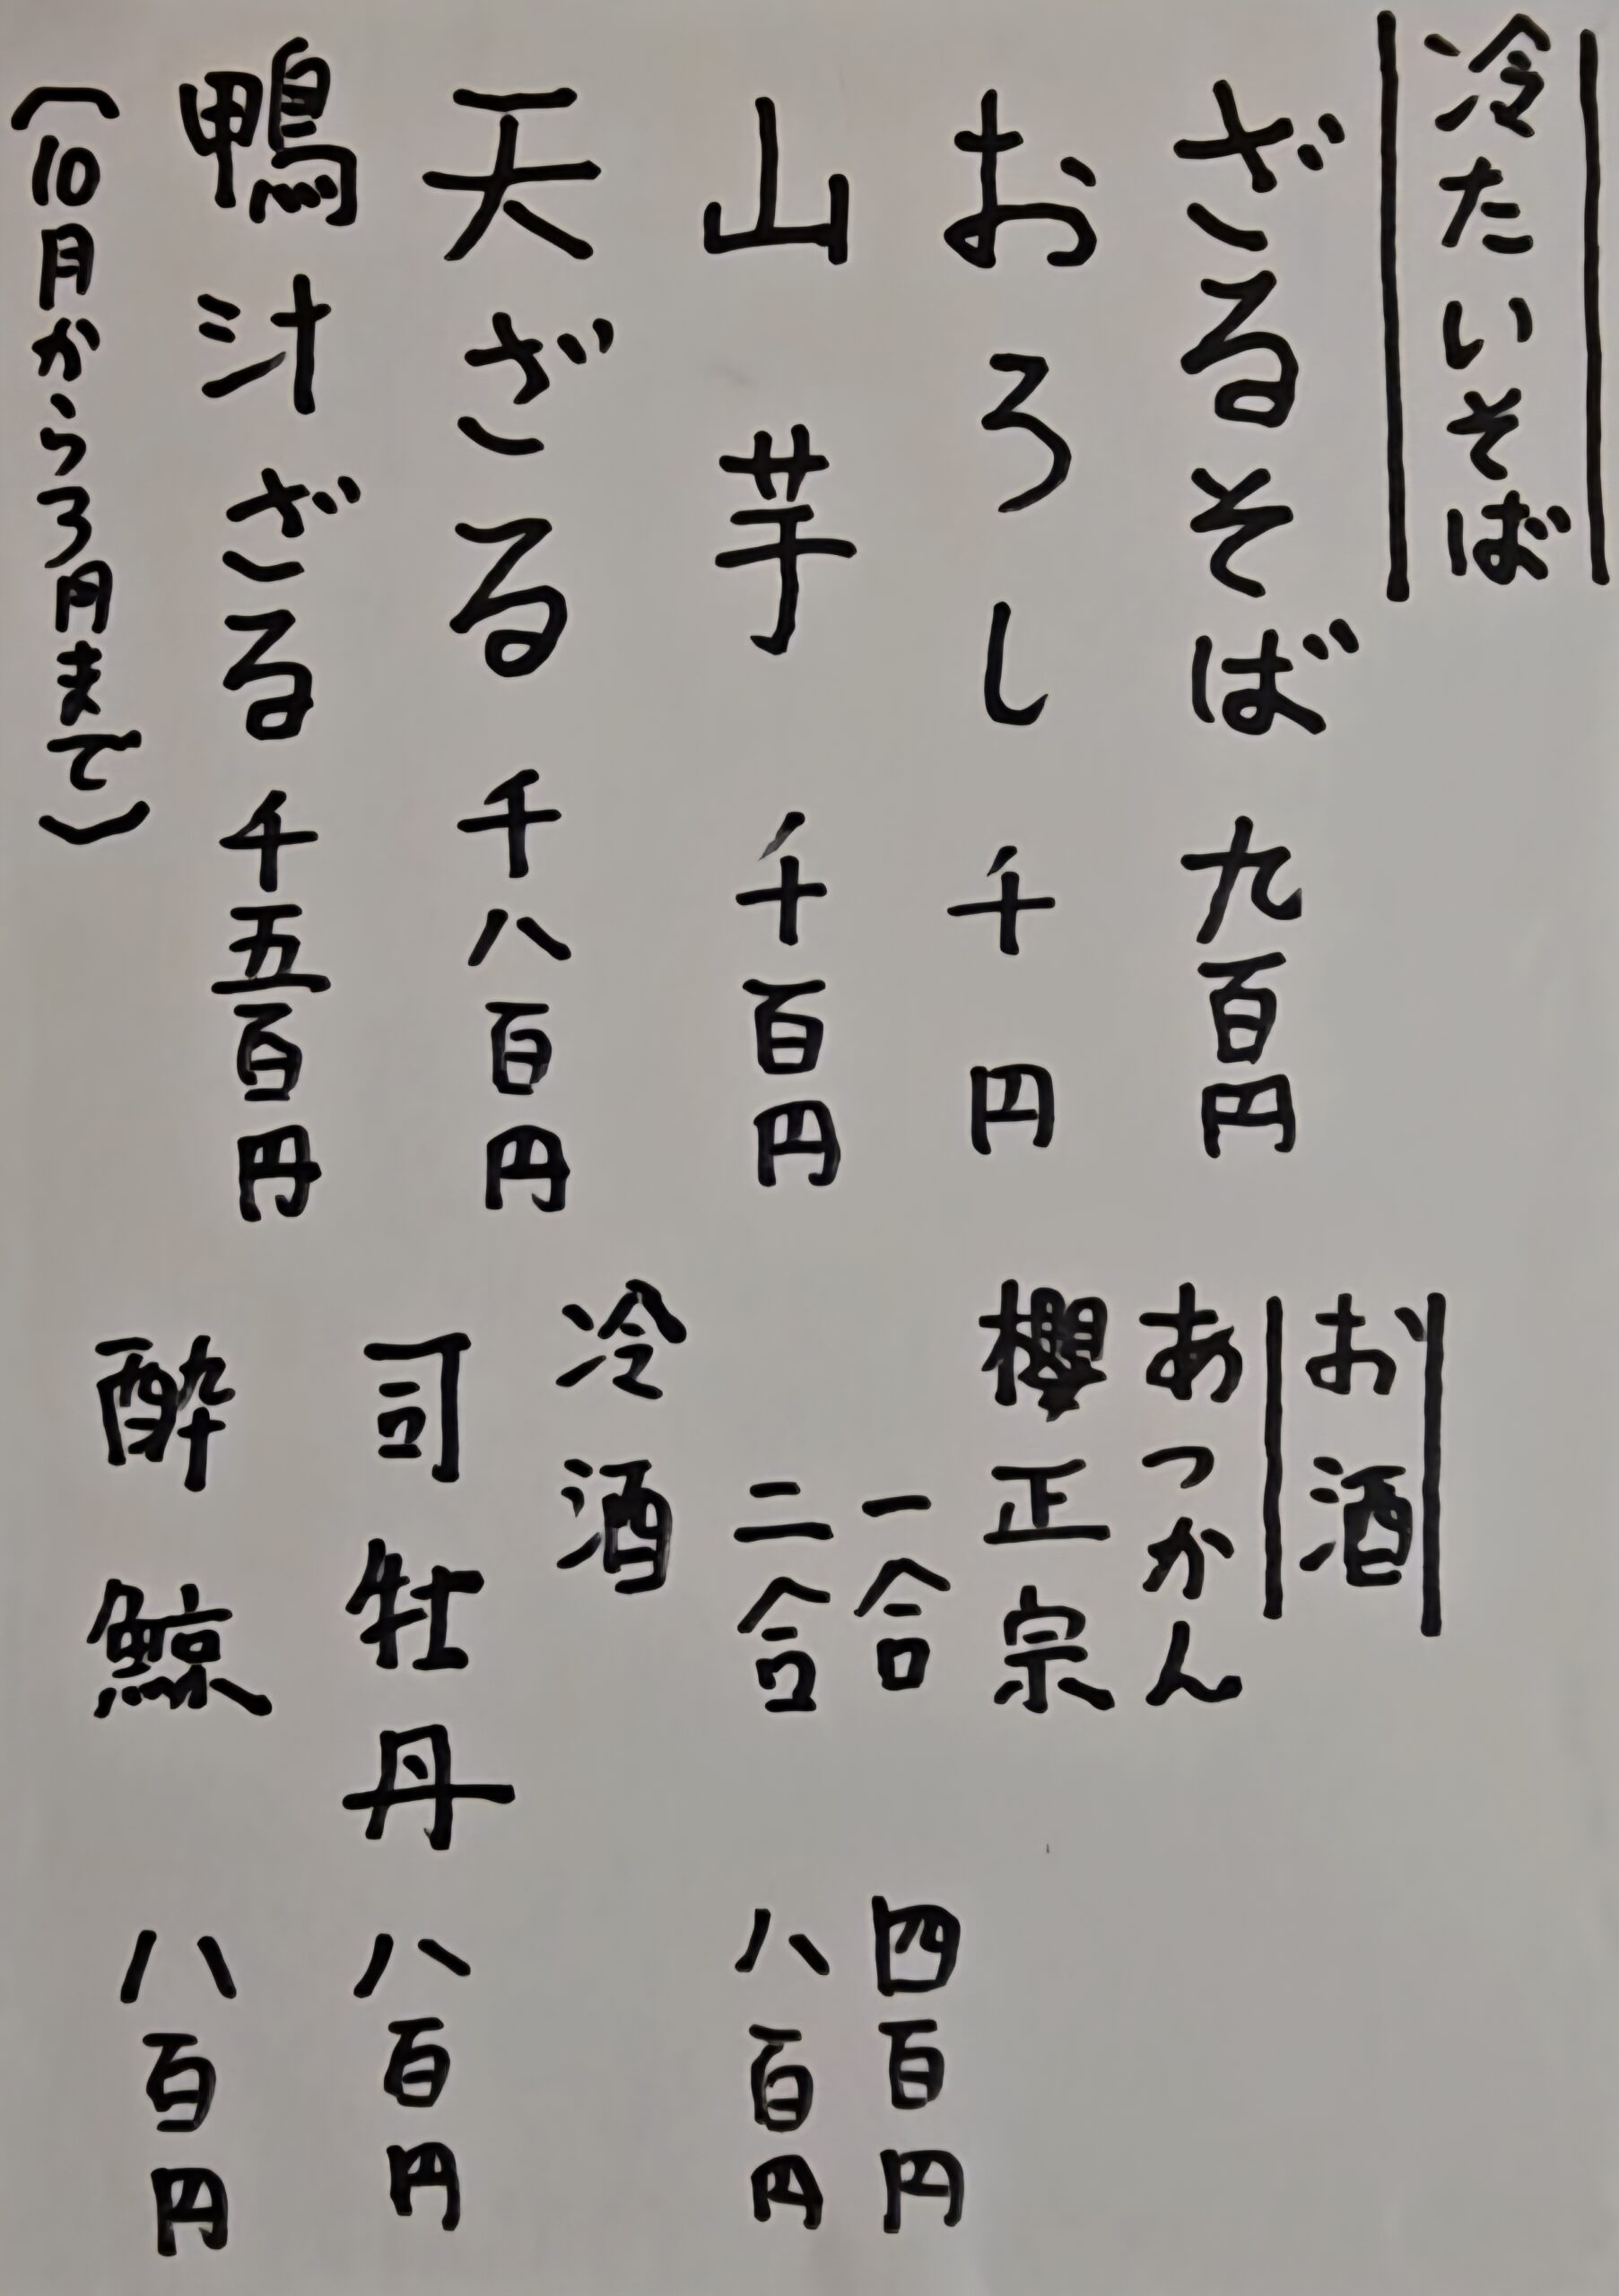 冷たいそば
ざるそば 九百円
おろし 千円
山芋 千百円
天ざる 千八百円
鴨汁ざる 千五百円
(10月から3月まで)
お酒
あつかん
櫻正宗
一合 四百円
二合 八百円
冷酒
司牡丹 八百円
酔鯨 八百円